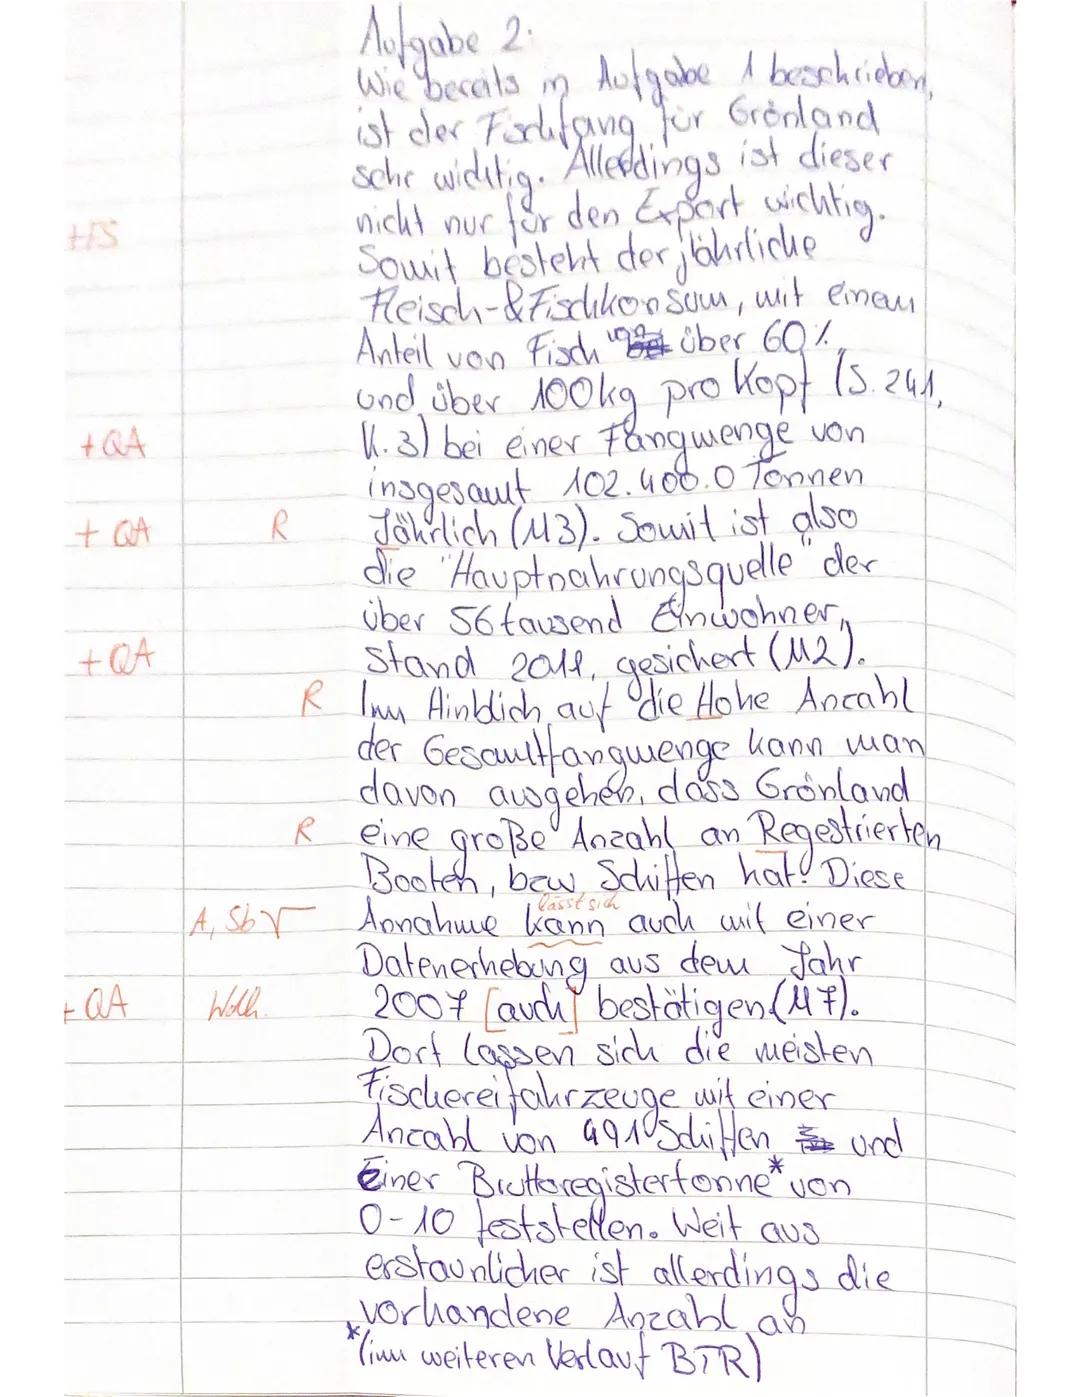 Aufgabe 2:
Wie bereits in Aufgabe 1 beschrieben,
ist der Fischfang für Grönland
sehr wichtig. Allerdings ist dieser
nicht nur für den Export wichtig.
+FS Somit besteht der jährliche
Fleisch-&Fischkonsum, mit einem
Anteil von Fisch über 60%
und über 100kg pro Kopf (S. 241,
+QA K.3) bei einer Fangmenge von
insgesamt 102.400.0 Tonnen
+ QA R Jährlich (M3). Somit ist also
die "Hauptnahrungsquelle" der
über 56 tausend Einwohner,
+ QA Stand 2011, gesichert (M2).
R Im Hinblich auf die Hohe Anzahl
der Gesamtfangmenge kann man
davon ausgehen, dass Grönland
R eine große Anzahl an Regestrierten
Booten, bzw. Schiffen hat. Diese
lässt sich
A, Sb √ Annahme kann auch mit einer
Datenerhebung aus dem Jahr
+ QA Wdh. 2007 [auch] bestätigen (M7).
Dort lassen sich die meisten
Fischereifahrzeuge mit einer
Anzahl von 491 Schiffen und
Einer Bruttoregistertonne* von
0-10 feststellen. Weit aus
erstaunlicher ist allerdings die
vorhandene Anzahl an
*(im weiteren Verlauf BTR)